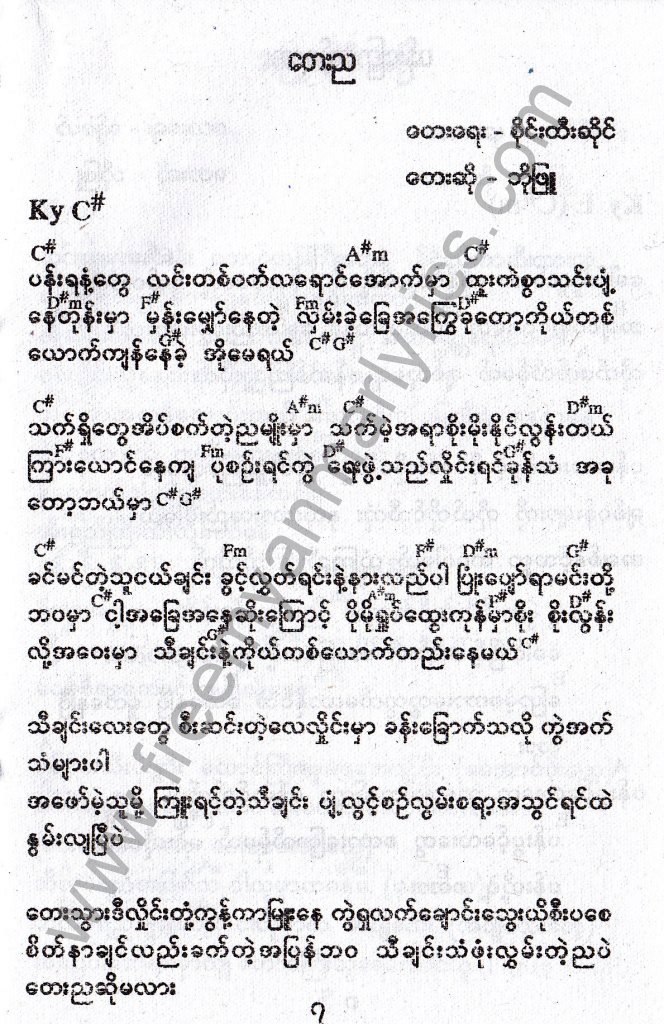 တေးည
တေးရေး - စိုင်းထီးဆိုင်
တေးဆို - ဘိုဖြူ
Ky C#
C# A#m C#
ပန်းရနံ့တွေ လင်းတစ်ဝက်လရောင်အောက်မှာ ထူးကဲစွာသင်းပျံ့
D#m F# Fm D#
နေတုန်းမှာ မှန်းမျှော်နေတဲ့ လွမ်းခဲ့ခြေအကြွေခုတော့ကိုယ်တစ်
G# C# G#
ယောက်ကျန်နေခဲ့ အိုမေရယ်
C# A#m C# D#m
သက်ရှိတွေအိပ်စက်တဲ့ညမျိုးမှာ သက်မဲ့အရာစိုးမိုးနိုင်လွန်းတယ်
F# Fm D# G#
ကြားယောင်နေကျ ပုစဉ်းရင်ကွဲ ရေးဖွဲ့သည်လှိုင်းရင်ခုန်သံ အခု
တော့ဘယ်မှာ C# G#
C# Fm F# D#m G#
ခင်မင်တဲ့သူငယ်ချင်း ခွင့်လွှတ်ရင်းနဲ့နားလည်ပါ ပြုံးပျော်ရာမင်းတို့
C# A#m F# D#
ဘဝမှာ ငါ့အခြေအနေဆိုးကြောင့် ပိုမိုရှုပ်ထွေးကုန်မှာစိုး စိုးလွန်း
G# C#
လို့အဝေးမှာ သီချင်းနဲ့ကိုယ်တစ်ယောက်တည်းနေမယ်
သီချင်းလေးတွေ စီးဆင်းတဲ့လေလှိုင်းမှာ ခန်းခြောက်သလို ကွဲအက်
သံများပါ
အဖော်မဲ့သူမို့ ကြူးရင့်တဲ့သီချင်း ပျံ့လွင့်စဉ်လွမ်းစရာ့အသွင်ရင်ထဲ
နွမ်းလျပြီပဲ
တေးသွားဒီလှိုင်းတုံ့ကွန့်ကာမြူးနေ ကွဲရှလက်ချောင်းသွေးယိုစီးပစေ
စိတ်နာချင်လည်းခက်တဲ့အပြန်ဘဝ သီချင်းသံဖုံးလွှမ်းတဲ့ညပဲ
တေးညဆိုမလား
၇
www.freemyanmarlyrics.com